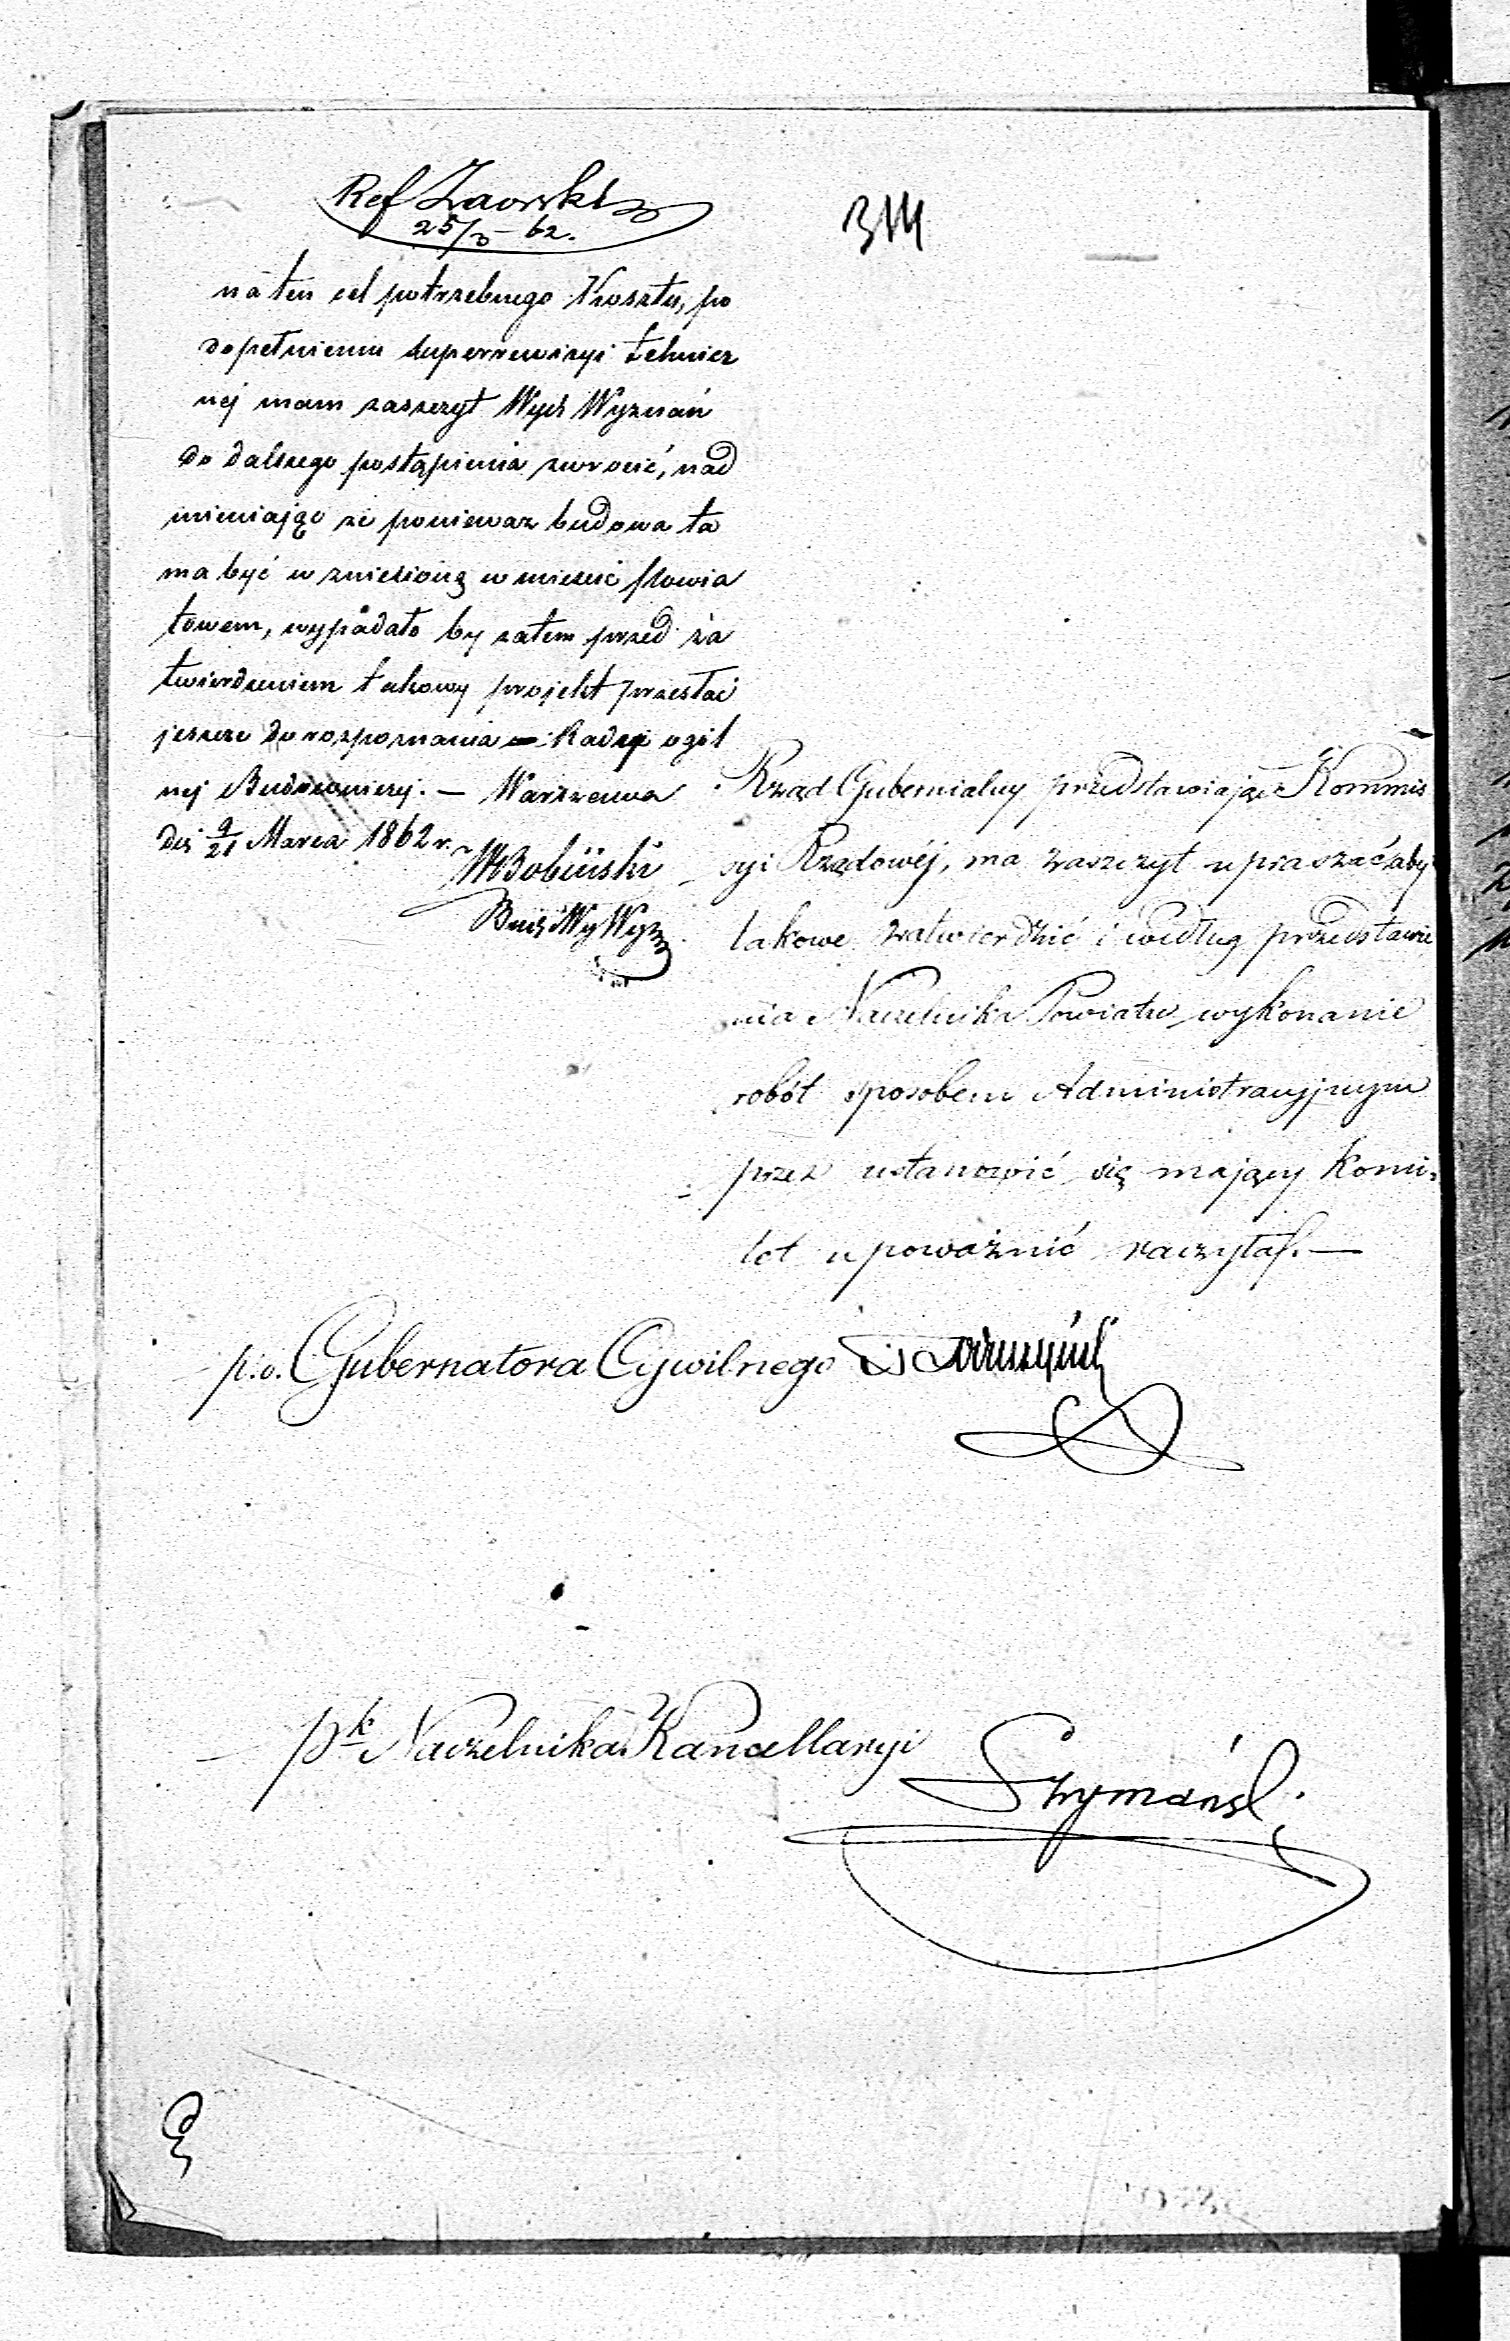 Ref Zaorski
25/3 - 62.
314
na ten cel potrzebnego Kosztu, po
dopełnieniu superrewizyi technicz
nej mam zaszczyt Wych Wyznań
do dalszego postąpienia zwrocić, nad
mieniając że poniewaz budowa ta
ma być w zniesioną w mieście powia
towem, wypadało by zatem przed za
twierdzeniem takowy projekt przesłać
jeszcze do rozpoznania Radzie ogól
nej Budowniczej. — Warszawa
dn 9/21 Marca 1862 r.
Bobiński
Bud Wy Wyzn
Rząd Gubernialny przedstawiając Kommis
syi Rządowéj, ma zaszczyt upraszać aby
takowe zatwierdzić i według przedstawie
nia Naczelnika Powiatu wykonanie
robót sposobem Administracyjnym
przez ustanowić się mający Komi-
tet upoważnić raczyła. —
p.o. Gubernatora Cywilnego
p Naczelnika Kancellaryi
Szymański